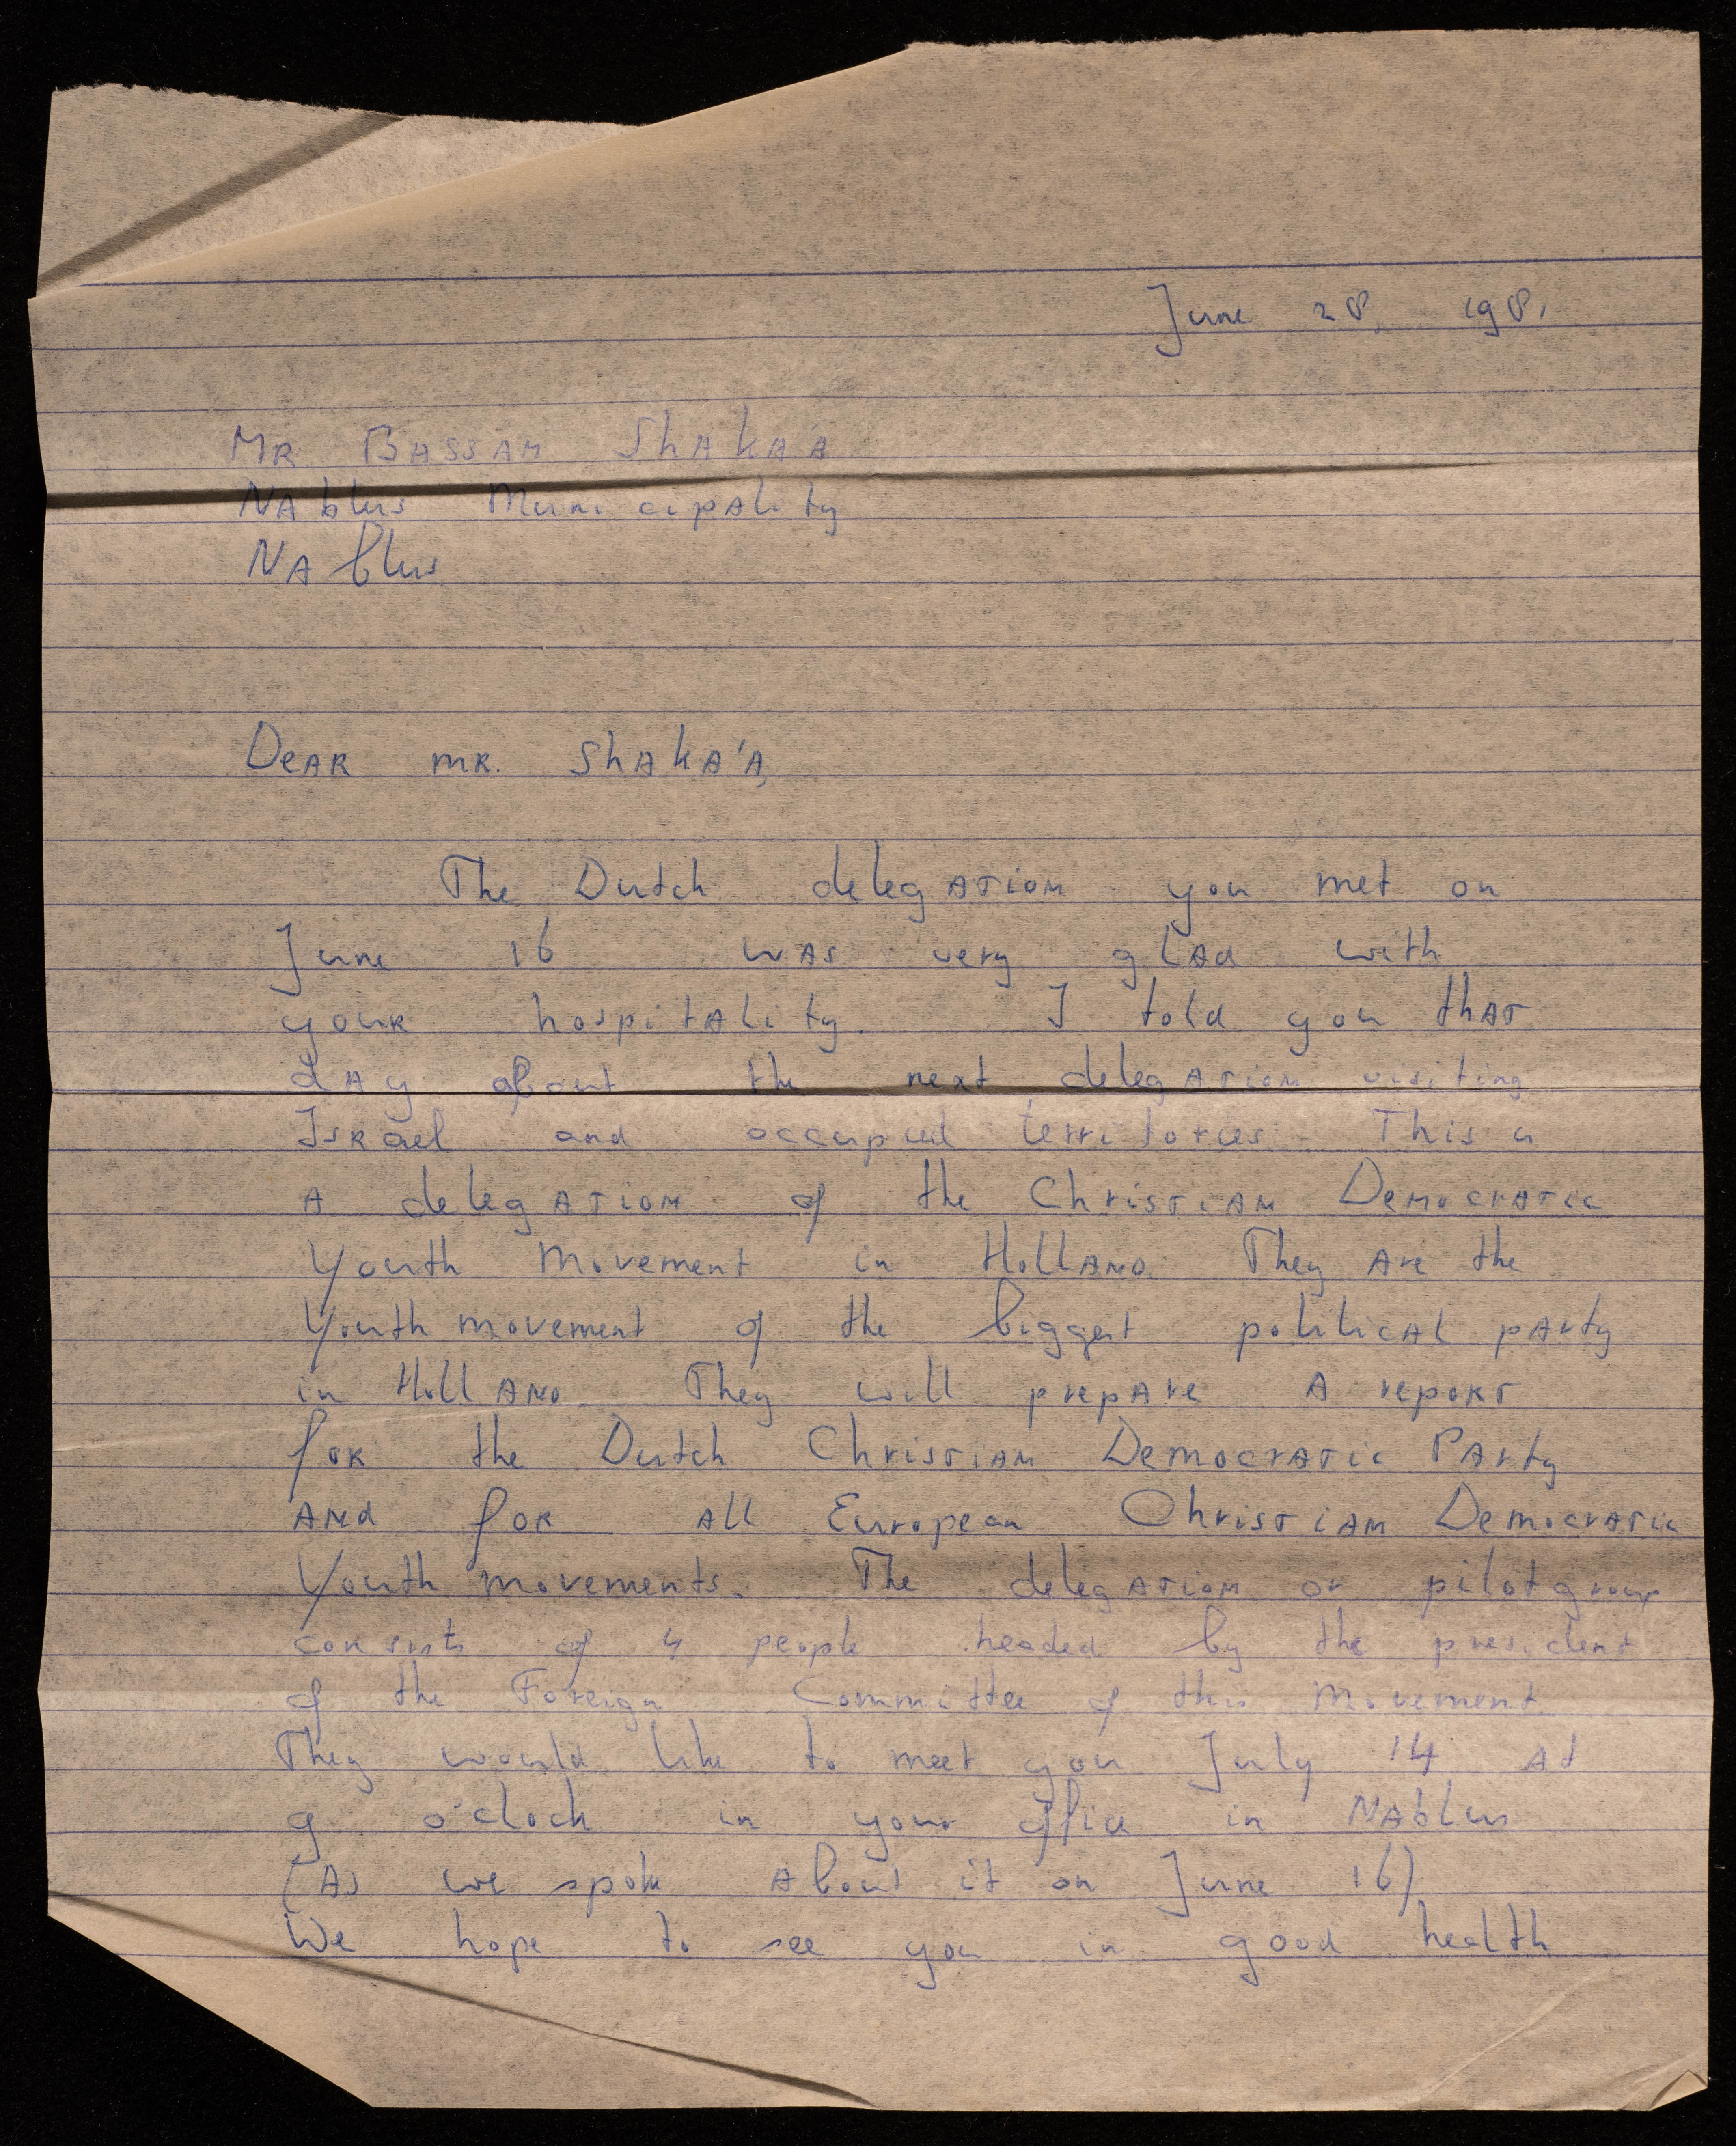 June 28, 1981
Mr Bassam Shaka'a
Nablus Municipality
Nablus
Dear mr. Shaka'a,
The Dutch delegation you met on
June 16 was very glad with
your hospitality. I told you that
day about the next delegation visiting
Israel and occupied territories. This is
a delegation of the Christian Democratic
Youth Movement in Holland. They are the
Youth movement of the biggest political party
in Holland. They will prepare a report
for the Dutch Christian Democratic Party
and for all European Christian Democratic
Youth movements. The delegation or pilotgroup
consists of 4 people headed by the president
of the Foreign Committee of this Movement
They would like to meet you July 14 at
9 o'clock in your office in Nablus
(As we spoke about it on June 16)
We hope to see you in good health